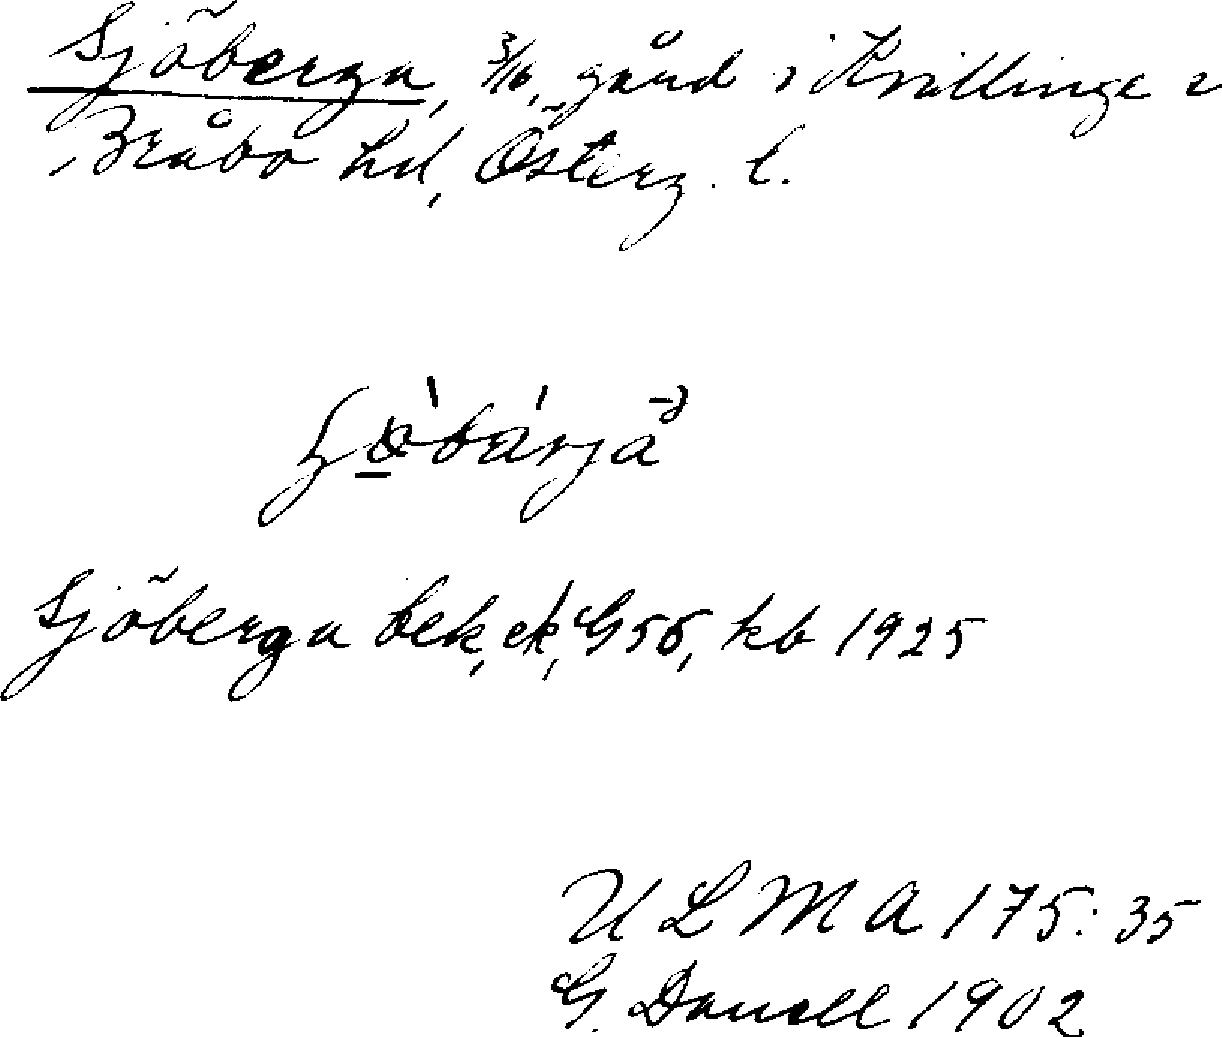 Sjöberga, 3/16, gård i Kvillinge s
Bråbo hd, Österg. l.
Sjöberga bek, ek, G55, kb 1925
ULMA 175:35
G. Danell 1902